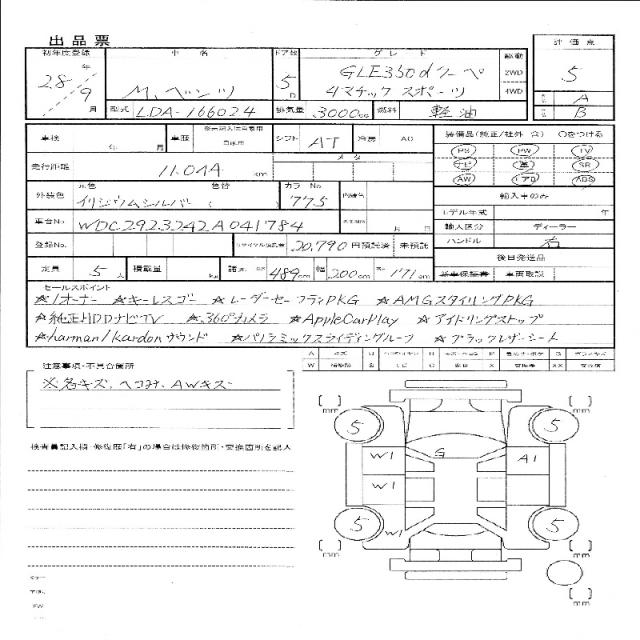 出品票
初年度登録 車名 ドア数 グレード 駆動 評価点
28年 9月 M.ベンツ 5D GLE350dクーペ 2WD 5
4マチック スポーツ 4WD A
型式 LDA-166024 排気量 3000cc 燃料 軽油 B
車検 年 月 車歴 自家用 シフト AT 冷房 AC 装備品(純正/社外 ☆) ○をつける
PS PW TV
走行距離 11.044 km メータ ナビ 革 SR
AW ABS
外装色 元色 色替 カラーNo
イリジウムシルバー ( ) 775 輸入車のみ
モデル年式 年
車台No. WDC2923242A041784 月 輸入区分 ディーラー
登録No. 20,790 円預託済 未預託 ハンドル 右
後日発送品
定員 5人 積載量 kg 489cm 幅 200cm 171cm 車両取説
セールスポイント
☆1オーナー ☆キーレスゴー ☆レーダーセーフティPKG ☆AMGスタイリングPKG
☆純正HDDナビTV ☆360°カメラ ☆AppleCarPlay ☆アイドリングストップ
☆harman/kardonサウンド ☆パノラミックスライディングルーフ ☆ブラックレザーシート
注意事項・不具合箇所
※各キズ、ヘコみ、AWキズ
検査員記入欄・修復歴「有」の場合は修復箇所・交換箇所を記入
mm mm
5 5
W1 G A1
W1
5 W1 5
mm mm
mm